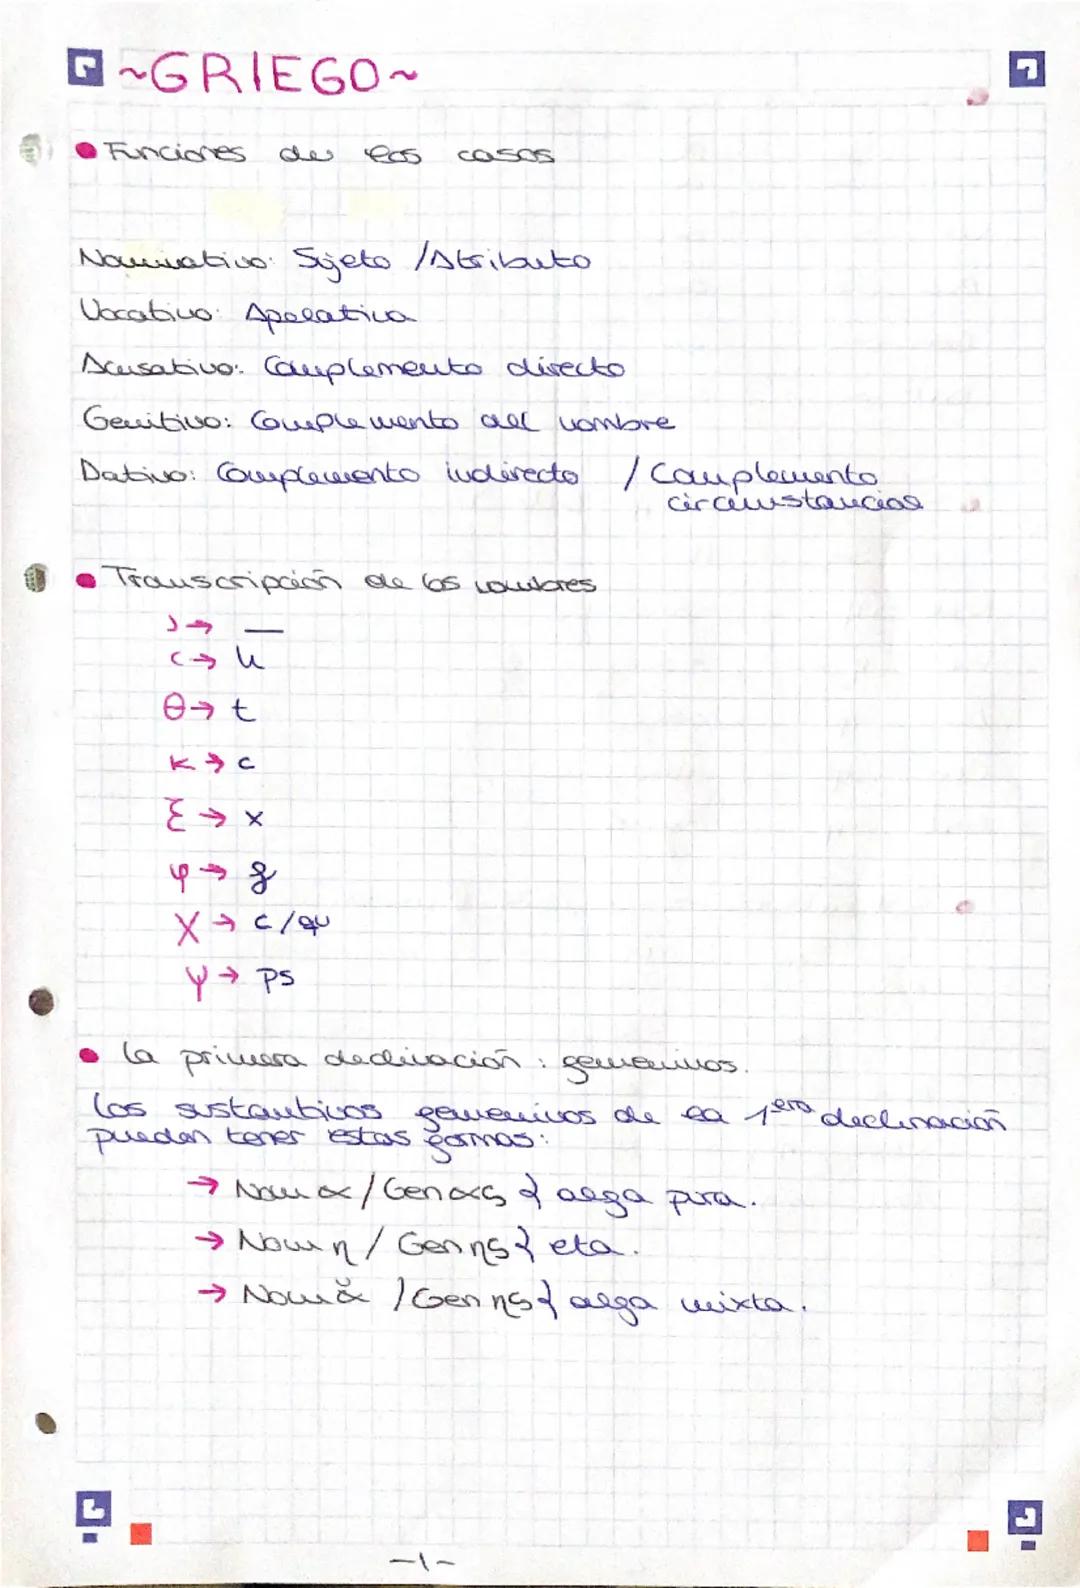 ~GRIEGO~
• Funciones de los casos
Nominativo: Sujeto / Atributo
Vocativo: Apelativa
Acusativo: Complemento directo
Genitivo: Complemento del nombre
Dativo: Complemento indirecto / Complemento
circunstancial
• Transcripción de los nombres
᾿ → _
῾ → h
θ → t
κ → c
ξ → x
φ → f
χ → c/qu
ψ → ps
• La primera declinación: femeninos.
Los sustantivos femeninos de la 1era declinación
pueden tener estas formas:
→ Nom α / Gen ας { alfa pura.
→ Nom η / Gen ης { eta.
→ Nom ᾰ / Gen ης { alfa mixta.
-1-